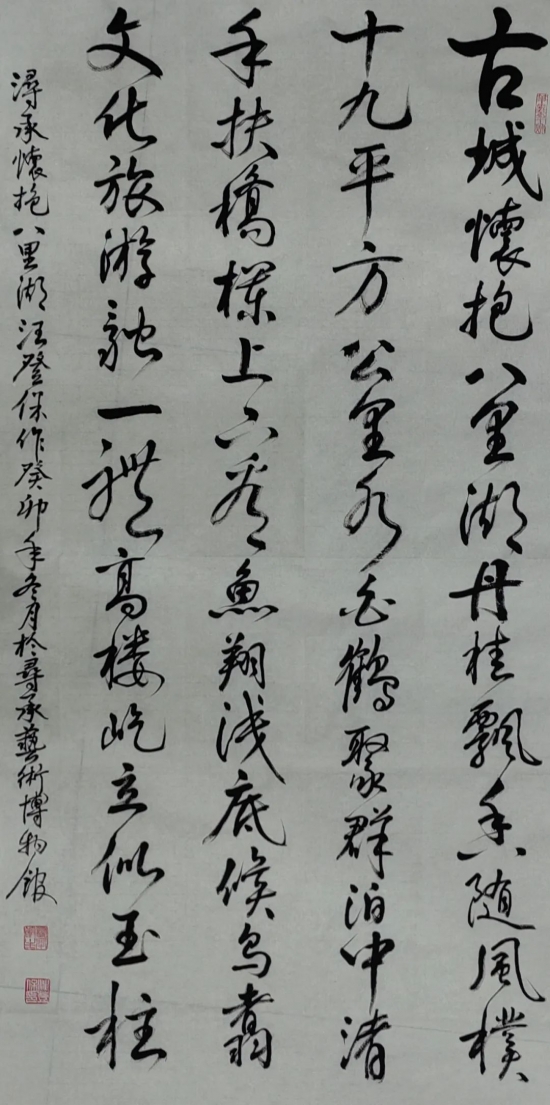 古城懷抱八里湖丹桂飄香随風樸
十九平方公里水白鶴聚群泊中渚
手扶橋欄上下看魚翔浅底候鸟翥
文化旅游融一體高楼屹立似玉柱
潯承懷抱八里湖汪登保作癸卯年冬月於尋承藝術博物館